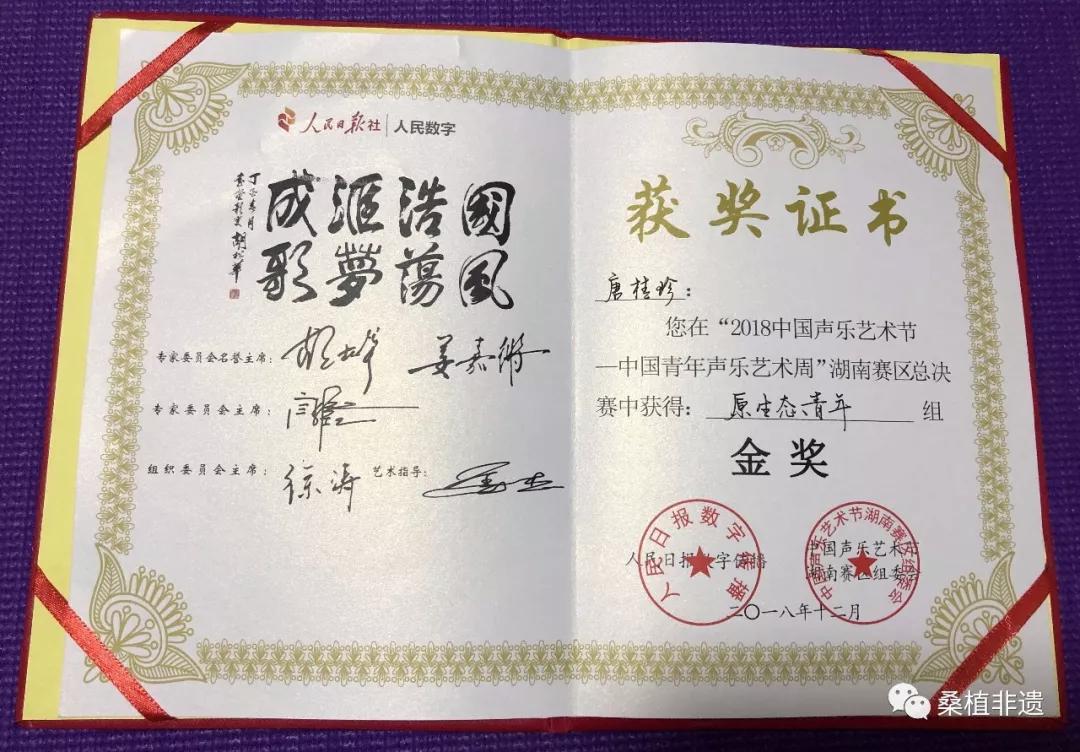 人民日报社 人民数字
國風
浩蕩
滙夢
成歌
专家委员会名誉主席：
姜嘉锵
专家委员会主席：
组织委员会主席：
徐涛
艺术指导：
获奖证书
唐桂珍：
您在“2018中国声乐艺术节
—中国青年声乐艺术周”湖南赛区总决
赛中获得：原生态、青年组
金奖
人民日报数字传播
中国声乐艺术节
湖南赛区组委会
二〇一八年十二月
人民日报数字传播
中国声乐艺术节湖南赛区组委会
桑植非遗